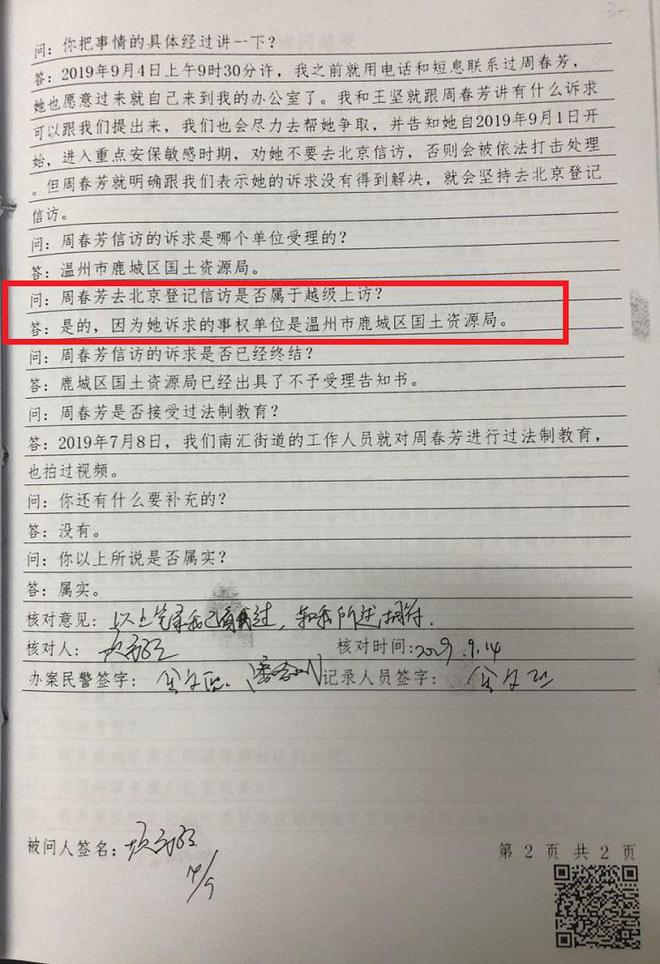 问：你把事情的具体经过讲一下？
答：2019年9月4日上午9时30分许，我之前就用电话和短息联系过周春芳，
她也愿意过来就自己来到我的办公室了。我和王坚就跟周春芳讲有什么诉求
可以跟我们提出来，我们也会尽力去帮她争取，并告知她自2019年9月1日开
始，进入重点安保敏感时期，劝她不要去北京信访，否则会被依法打击处理
。但周春芳就明确跟我们表示她的诉求没有得到解决，就会坚持去北京登记
信访。
问：周春芳信访的诉求是哪个单位受理的？
答：温州市鹿城区国土资源局。
问：周春芳去北京登记信访是否属于越级上访？
答：是的，因为她诉求的事权单位是温州市鹿城区国土资源局。
问：周春芳信访的诉求是否已经终结？
答：鹿城区国土资源局已经出具了不予受理告知书。
问：周春芳是否接受过法制教育？
答：2019年7月8日，我们南汇街道的工作人员就对周春芳进行过法制教育，
也拍过视频。
问：你还有什么要补充的？
答：没有。
问：你以上所说是否属实？
答：属实。
核对意见：以上笔录我已阅过，和我所述相符.
核对人： 核对时间：2019.9.14
办案民警签字： 记录人员签字：
被问人签名：
第 2 页 共 2 页